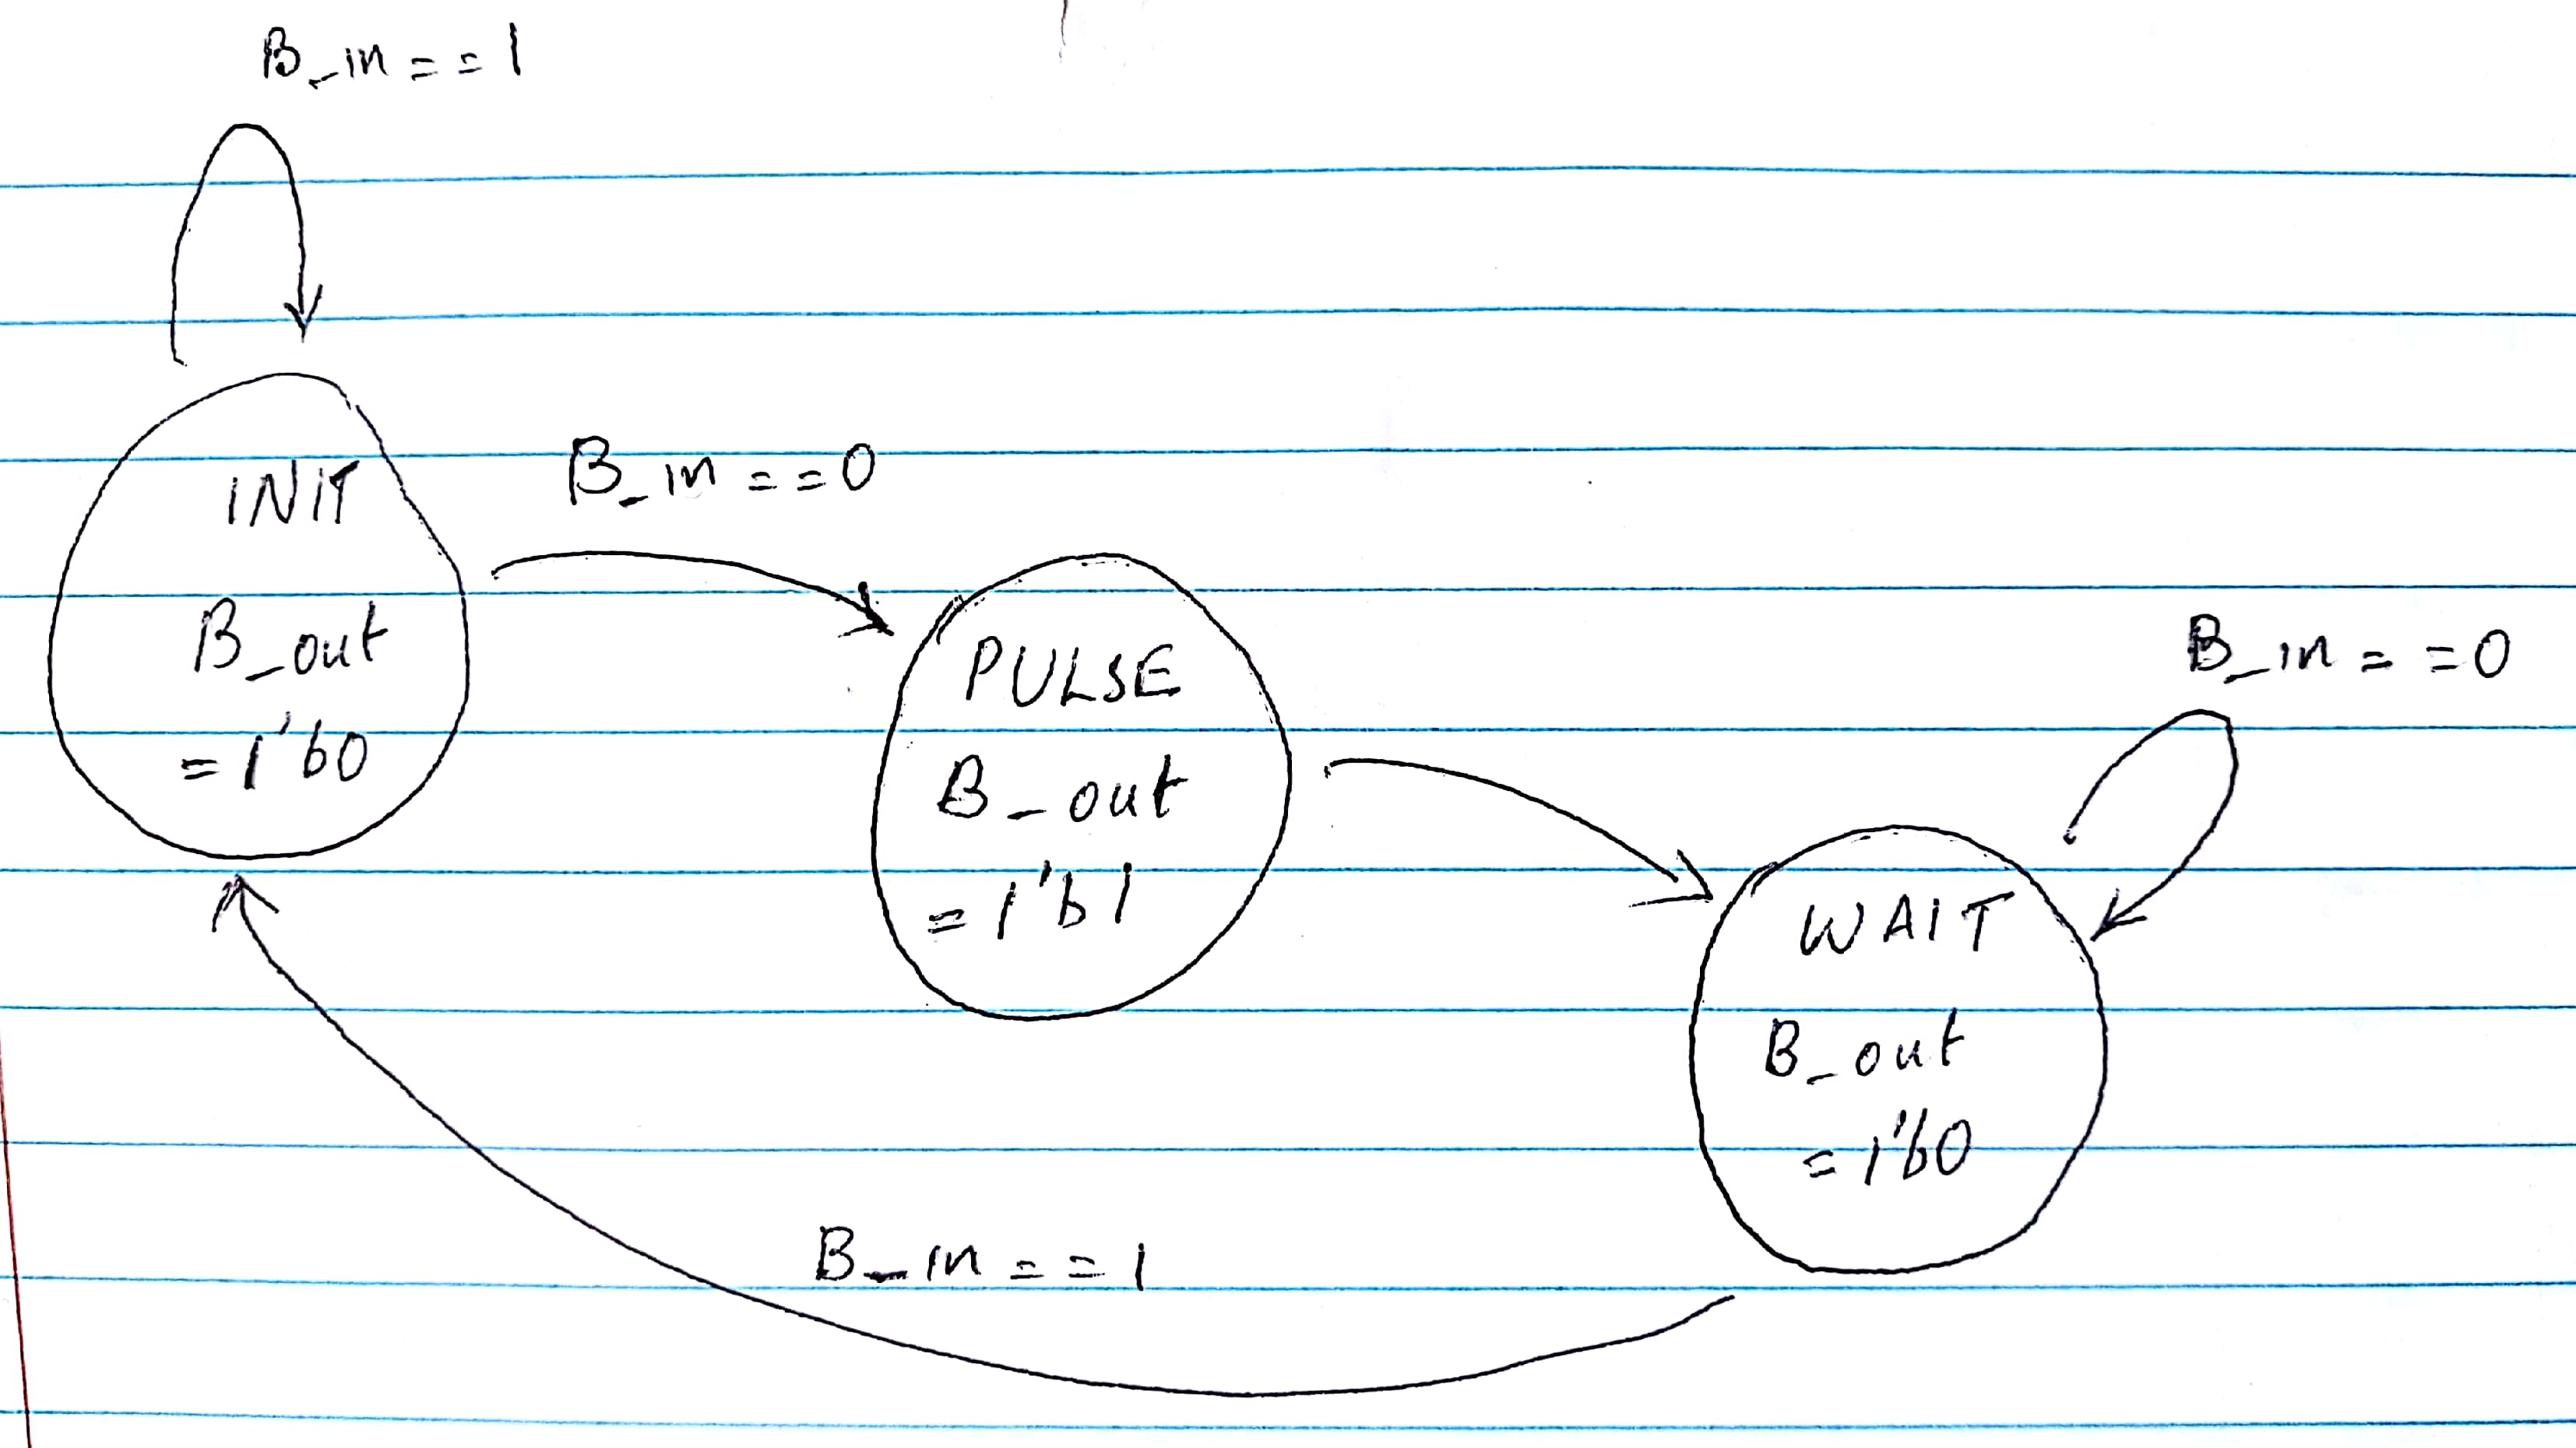 B_in==1
INIT
B_out
=1'b0
B_in==0
PULSE
B_out
=1'b1
B_in==0
WAIT
B_out
=1'b0
B_in==1